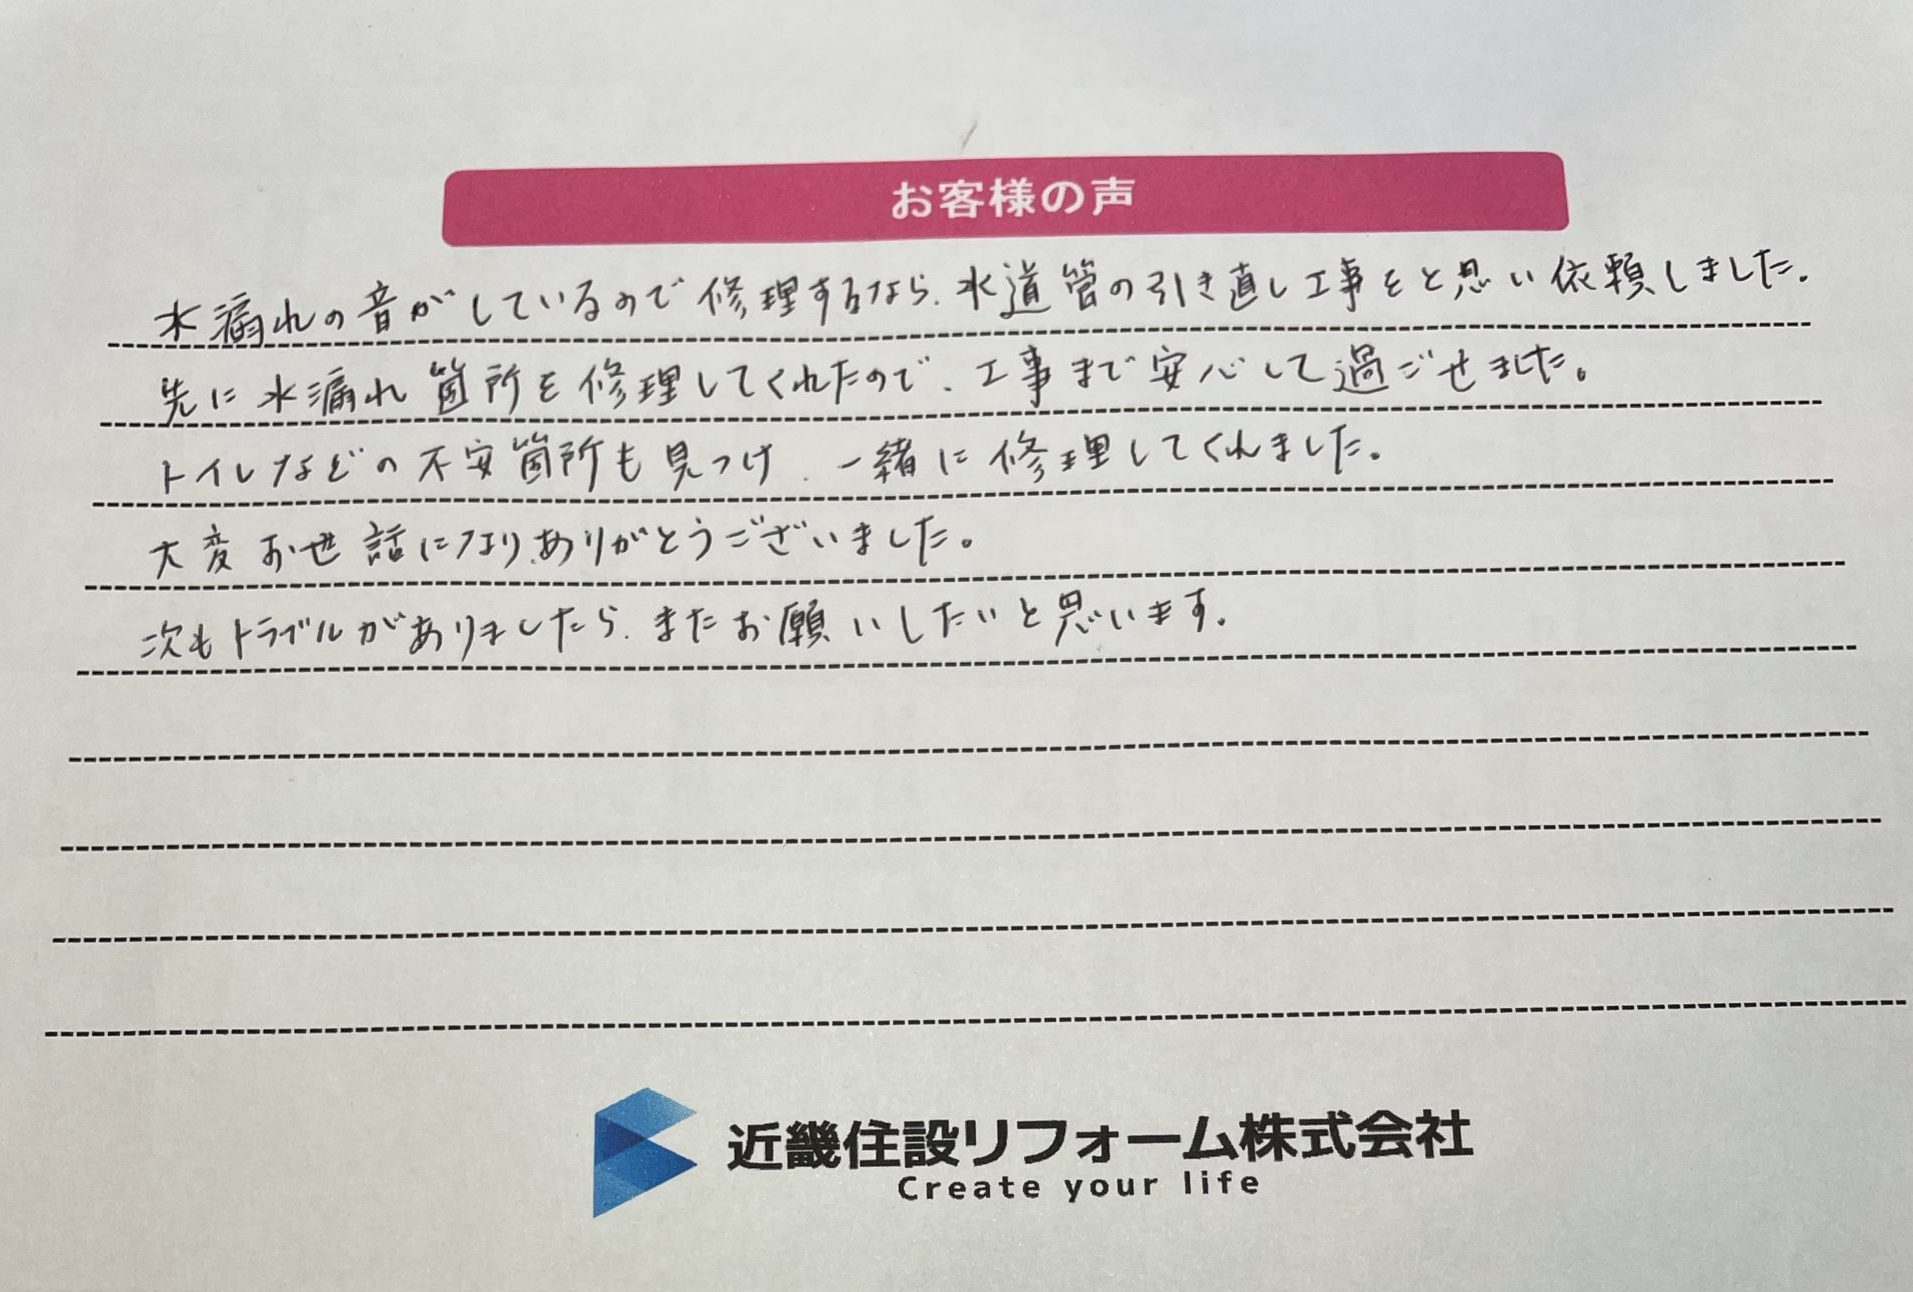 お客様の声
水漏れの音がしているので修理するなら、水道管の引き直し工事をと思い依頼しました。
先に水漏れ箇所を修理してくれたので、工事まで安心して過ごせました。
トイレなどの不安箇所も見つけ、一緒に修理してくれました。
大変お世話になり、ありがとうございました。
次もトラブルがありましたら、またお願いしたいと思います。
近畿住設リフォーム株式会社
Create your life